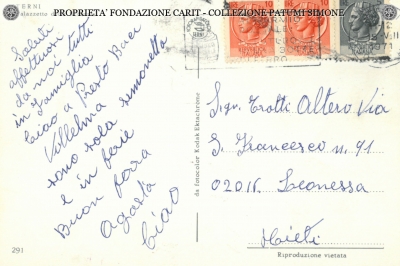 PROPRIETA' FONDAZIONE CARIT - COLLEZIONE PATUMI SIMONE
TERNI
Saluti
affettuosi
da noi tutti
in famiglia
Ciao a Presto Baci
Vallelma simonetta
sono sola
e in ferie
Buon forza
agosto
Ciao
291
da fotocolor Kodak Ektachrome
Sig. Trotti Altero Via
S. Francesco n. 91
02016 Leonessa
Rieti
Riproduzione vietata